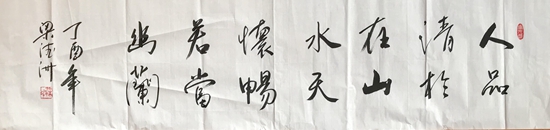 人品
清於
在山
水天
懷暢
若當
幽蘭
丁酉年
梁洲